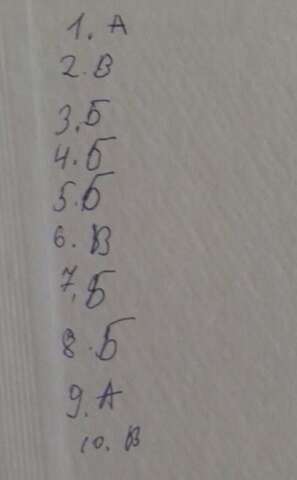 1. А
2. В
3. Б
4. Б
5. Б
6. В
7. Б
8. Б
9. А
10. В